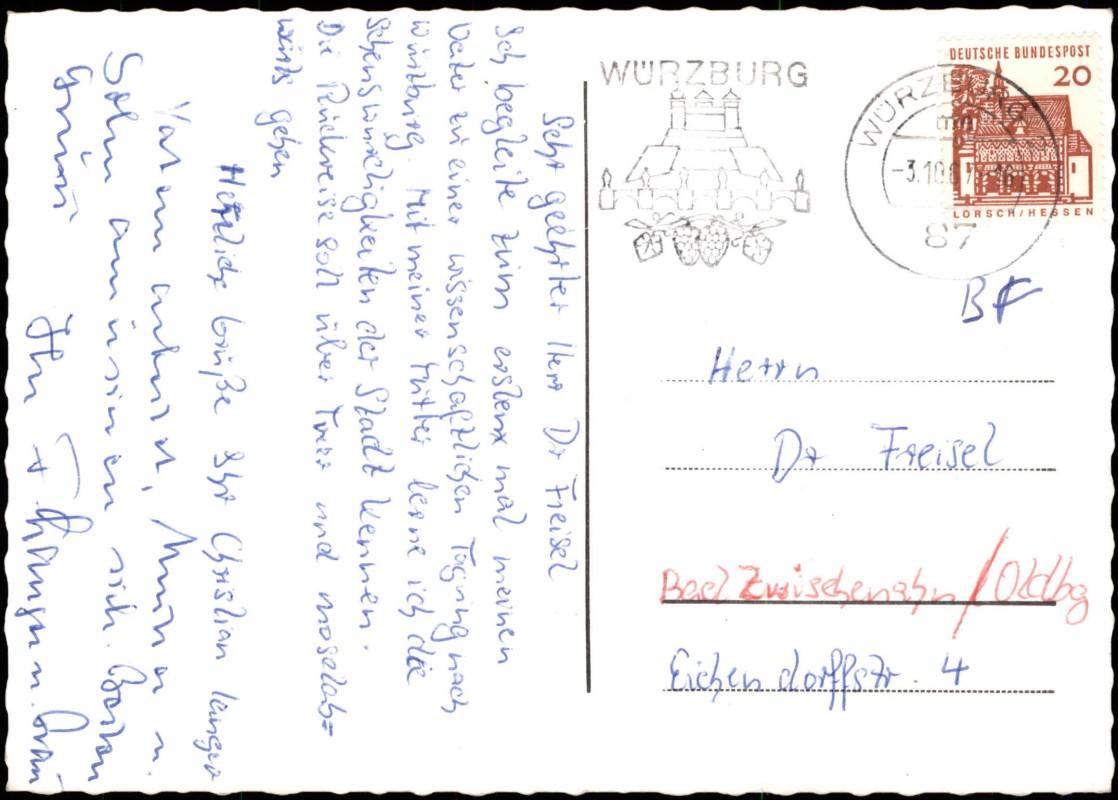 Sehr geehrter Herr Dr Freisel
Ich begleite zum erstenx mal meinen
Vater zu einer wissenschaftlichen Tagung nach
Würzburg. Mit meiner Mutter lerne ich die
Sehenswürdigkeiten der Stadt kennen.
Die Rückreise soll über Trier und moselab=
wärts gehen
Herzliche Grüße Ihr Christian
Ihr
WÜRZBURG
WÜRZBURG
mn
-3.10.6
87
DEUTSCHE BUNDESPOST
20
LORSCH/HESSEN
Herrn
Dr Freisel
Bad Zwischenahn/Oldbg
Eichendorffstr. 4